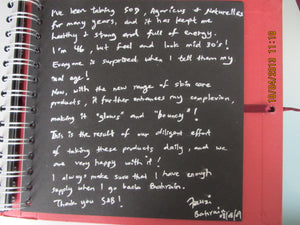 I've been taking SOD, Agaricus & Naturelles
for many years, and it has kept me
healthy & strong and full of energy.
I'm 46, but feel and look mid 30's!
Everyone is surprised when I tell them my
real age!
Now, with the new range of skin care
products, it further enhances my complexion,
making it "glows" and "bouncy"!
This is the result of our diligent effort
of taking these products daily, and we
are very happy with it!
I always make sure that I have enough
supply when I go back Bahrain.
Thank you SAB!
Bahrain